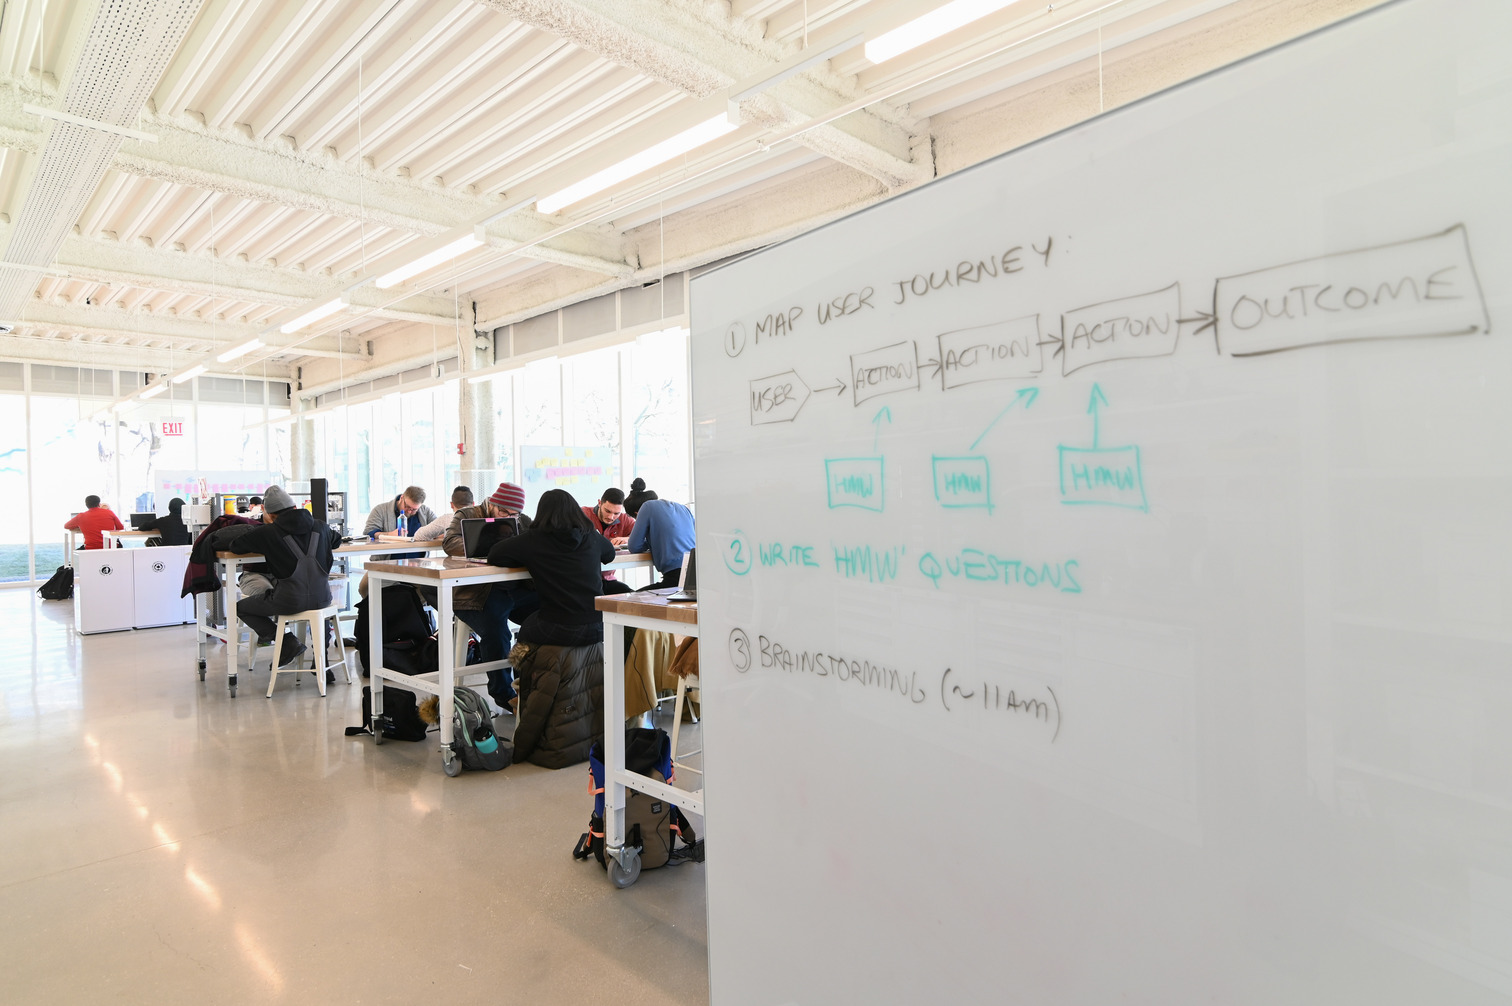 ① MAP USER JOURNEY:
USER ACTION ACTION ACTION OUTCOME
HMW HMW HMW
② WRITE 'HMW' QUESTIONS
③ BRAINSTORMING (~11AM)
EXIT